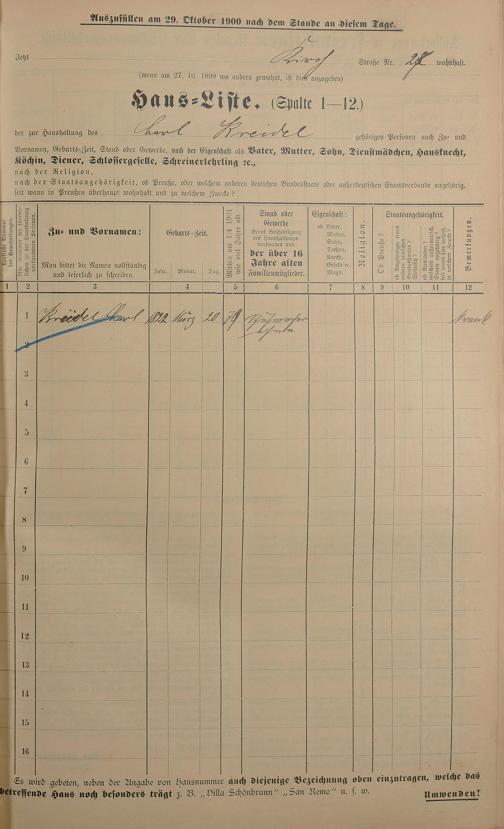 Auszufüllen am 29. Oktober 1900 nach dem Stande an diesem Tage.
Jetzt Kirch Straße Nr. wohnhaft.
(wenn am 27. 10. 1899 wo anders gewohnt, ist dies anzugeben)
Haus-Liste. (Spalte 1—12.)
der zur Haushaltung des Carl Kreidel gehörigen Personen nach Zu- und
Vornamen, Geburts-Zeit, Stand oder Gewerbe, nach der Eigenschaft als Vater, Mutter, Sohn, Dienstmädchen, Hausknecht,
Köchin, Diener, Schlossergeselle, Schreinerlehrling ec.,
nach der Religion,
nach der Staatsangehörigkeit, ob Preuße, oder welchem anderen deutschen Bundesstaate oder außerdeutschen Staatsverbande angehörig,
seit wann in Preußen überhaupt wohnhaft und zu welchem Zwecke?
Zu- und Vornamen:
Man bittet die Namen vollständig
und leserlich zu schreiben.
Geburts-Zeit.
Jahr. Monat. Tag.
Stand oder
Gewerbe
der über 16
Jahre alten
Familienmitglieder.
Eigenschaft:
ob Vater,
Mutter,
Sohn,
Tochter,
Knecht,
Geselle
Magd.
Religion.
Staatsangehörigkeit.
Ob Preuße?
Bemerkungen.
1 2 3 4 5 6 7 8 9 10 11 12
1 Kreidel Karl 1822 März 20 79 krank
2
3
4
5
6
7
8
9
10
11
12
13
14
15
16
Es wird gebeten, neben der Angabe von Hausnummer auch diejenige Bezeichnung oben einzutragen, welche das
betreffende Haus noch besonders trägt z. B. „Villa Schönbrunn" „San Remo" u. s. w. Umwenden!